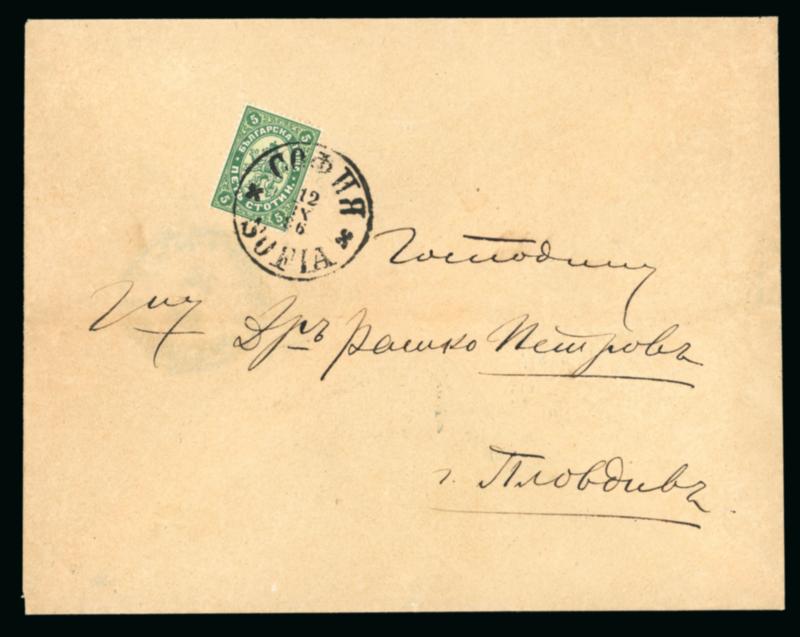 5 5
БЪЛГАРСКА
ПЕТЬ СТОТИН.
5 5
СОФИЯ
12
IX
6
SOFIA
Господину
Г-ну Д-ръ Рашко Петровъ
г. Пловдивъ